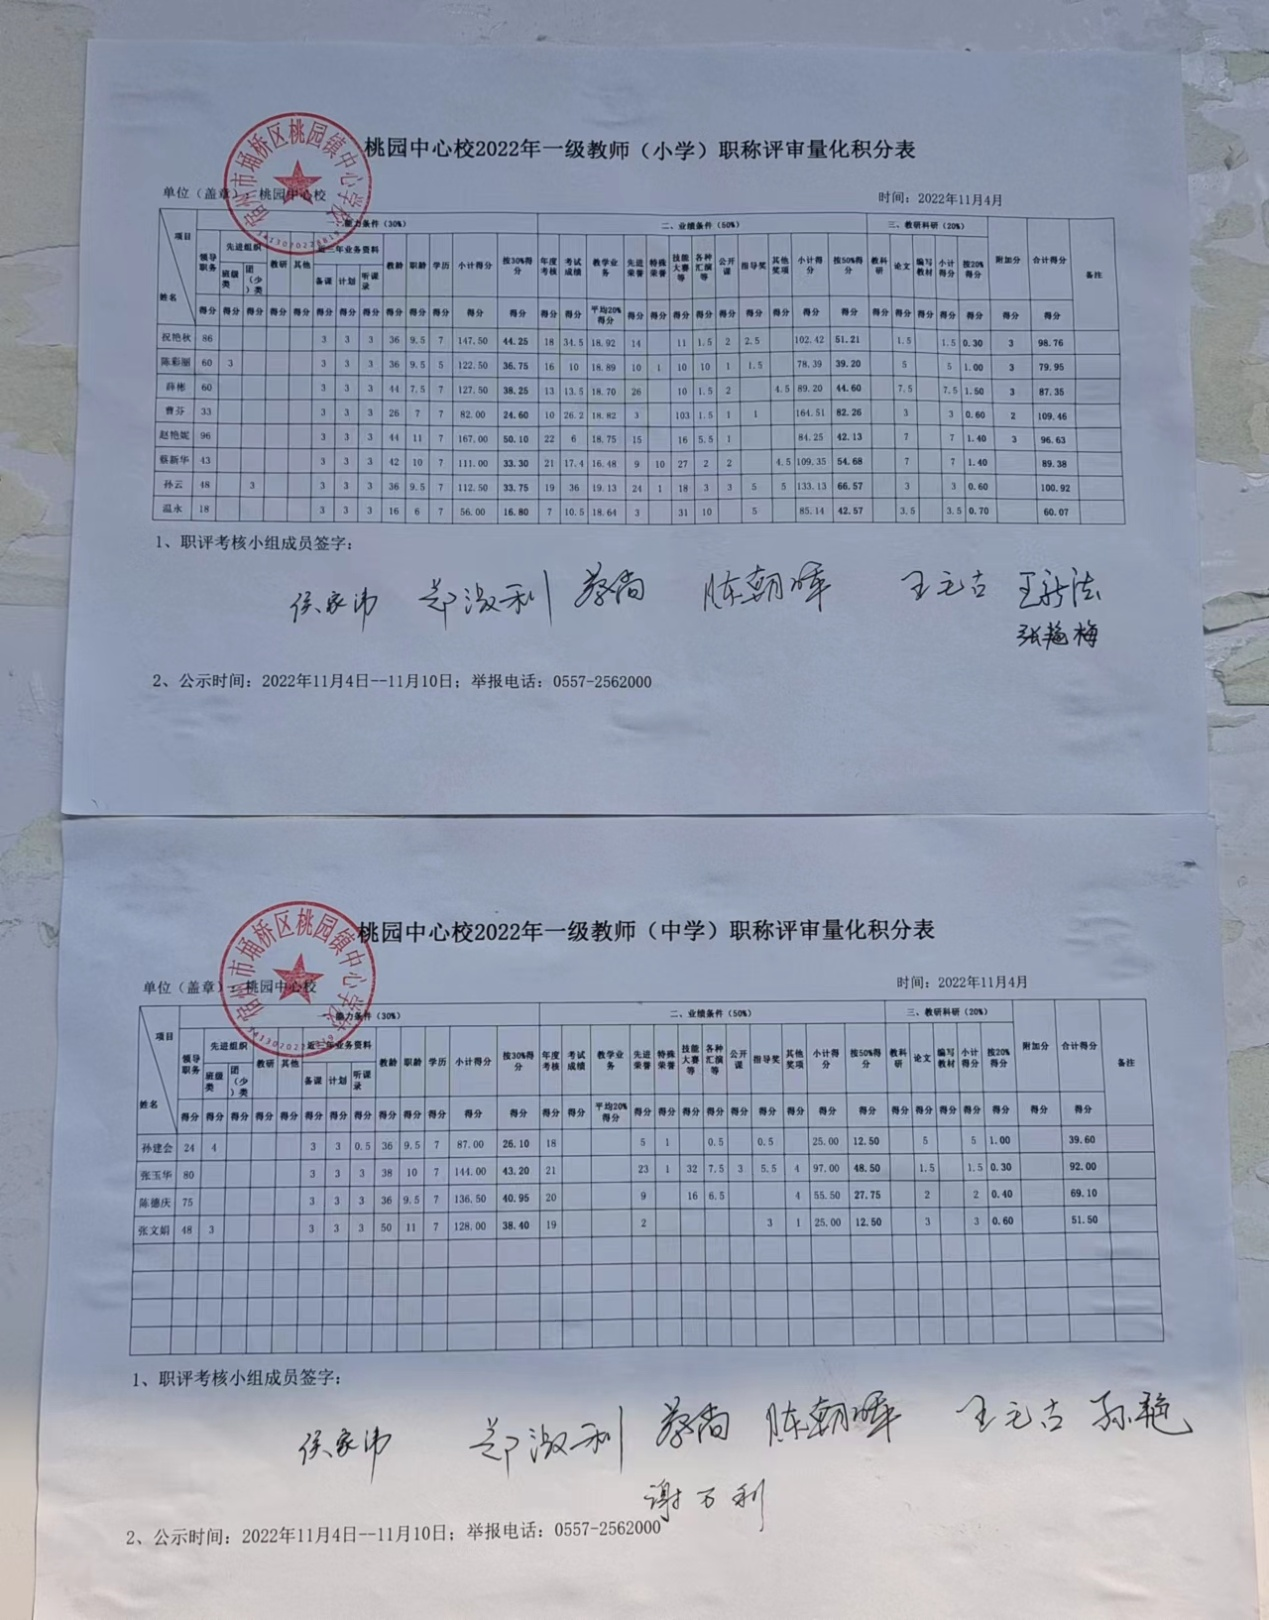 桃园中心校2022年一级教师（小学）职称评审量化积分表
宿州市埇桥区桃园镇中心学校
单位（盖章）：桃园中心校 时间：2022年11月4日
项目 姓名 一、能力条件（30%） 二、业绩条件（50%） 三、教研科研（20%） 附加分 合计得分 备注
领导职务 先进组织 教研 其他 近三年业务资料 教龄 职龄 学历 小计得分 按30%得分 年度考核 考试成绩 教学业务 先进荣誉 特殊荣誉 技能大赛等 各种汇演等 公开课 指导奖 其他奖项 小计得分 按50%得分 教科研 论文 编写教材 小计得分 按20%得分
班级类 团（少）类 备课 计划 听课录
得分 得分 得分 得分 得分 得分 得分 得分 得分 得分 得分 得分 得分 得分 得分 平均20%得分 得分 得分 得分 得分 得分 得分 得分 得分 得分 得分 得分 得分 得分 得分 得分 得分
祝艳秋 86 3 3 3 36 9.5 7 147.50 44.25 18 34.5 18.92 14 11 1.5 2 2.5 102.42 51.21 1.5 1.5 0.30 3 98.76
陈彩丽 60 3 3 3 3 36 9.5 5 122.50 36.75 16 10 18.89 10 1 10 10 1 1.5 78.39 39.20 5 5 1.00 3 79.95
薛彬 60 3 3 3 44 7.5 7 127.50 38.25 13 13.5 18.70 26 10 1.5 2 4.5 89.20 44.60 7.5 7.5 1.50 3 87.35
曹芬 33 3 3 3 26 7 7 82.00 24.60 10 26.2 18.82 3 103 1.5 1 1 164.51 82.26 3 3 0.60 2 109.46
赵艳妮 96 3 3 3 44 11 7 167.00 50.10 22 6 18.75 15 16 5.5 1 84.25 42.13 7 7 1.40 3 96.63
蔡新华 43 3 3 3 42 10 7 111.00 33.30 21 17.4 16.48 9 10 27 2 2 4.5 109.35 54.68 7 7 1.40 89.38
孙云 48 3 3 3 3 36 9.5 7 112.50 33.75 19 36 19.13 24 1 18 3 3 5 5 133.13 66.57 3 3 0.60 100.92
温永 18 3 3 3 16 6 7 56.00 16.80 7 10.5 18.64 3 31 10 5 85.14 42.57 3.5 3.5 0.70 60.07
1、职评考核小组成员签字：
侯家沛 郑淑利 蔡尚 陈朝晖 王元古 王新法
张艳梅
2、公示时间：2022年11月4日--11月10日；举报电话：0557-2562000
桃园中心校2022年一级教师（中学）职称评审量化积分表
宿州市埇桥区桃园镇中心学校
单位（盖章）：桃园中心校 时间：2022年11月4日
项目 姓名 一、能力条件（30%） 二、业绩条件（50%） 三、教研科研（20%） 附加分 合计得分 备注
领导职务 先进组织 教研 其他 近三年业务资料 教龄 职龄 学历 小计得分 按30%得分 年度考核 考试成绩 教学业务 先进荣誉 特殊荣誉 技能大赛等 各种汇演等 公开课 指导奖 其他奖项 小计得分 按50%得分 教科研 论文 编写教材 小计得分 按20%得分
班级类 团（少）类 备课 计划 听课录
得分 得分 得分 得分 得分 得分 得分 得分 得分 得分 得分 得分 得分 得分 得分 平均20%得分 得分 得分 得分 得分 得分 得分 得分 得分 得分 得分 得分 得分 得分 得分 得分 得分
孙建会 24 4 3 3 0.5 36 9.5 7 87.00 26.10 18 5 1 0.5 0.5 25.00 12.50 5 5 1.00 39.60
张玉华 80 3 3 3 38 10 7 144.00 43.20 21 23 1 32 7.5 3 5.5 4 97.00 48.50 1.5 1.5 0.30 92.00
陈德庆 75 3 3 3 36 9.5 7 136.50 40.95 20 9 16 6.5 4 55.50 27.75 2 2 0.40 69.10
张文娟 48 3 3 3 3 50 11 7 128.00 38.40 19 2 3 1 25.00 12.50 3 3 0.60 51.50
1、职评考核小组成员签字：
侯家沛 郑淑利 蔡尚 陈朝晖 王元古 孙艳
谢万利
2、公示时间：2022年11月4日--11月10日；举报电话：0557-2562000